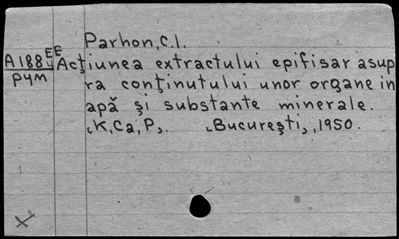 Parhon, C.I.
A188 EE Acţiunea extractului epifisar asup
РУМ ra conţinutului unor organe in
apă şi substante minerale.
„K, Ca, P„. „Bucureşti„, 1950.
X